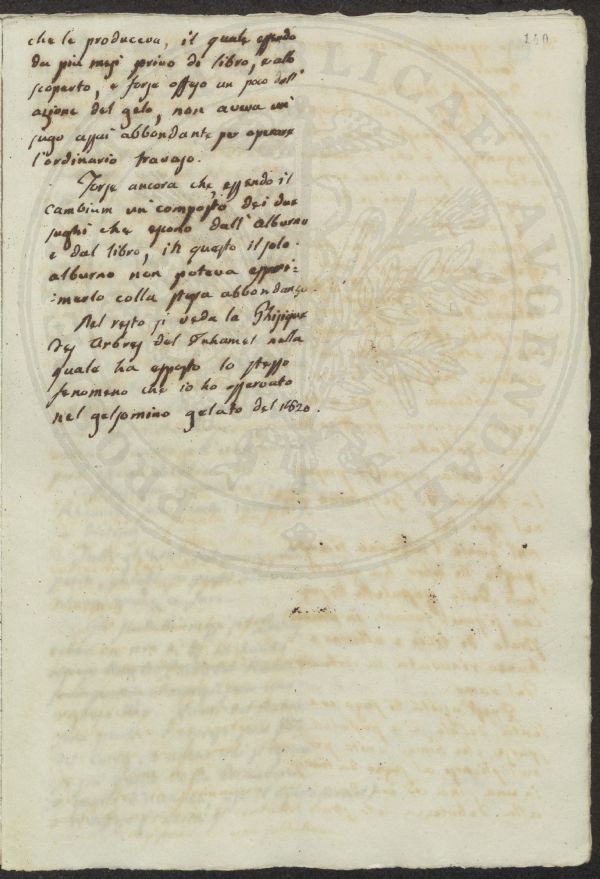 160
che le produceva, il quale essendo
da più mesi privo di libro, e allo
scoperto, e forse offeso un poco dall'
azione del gelo, non aveva un
sugo assai abbondante per operare
l'ordinario travaso.
Forse ancora che, essendo il
cambium un composto dei due
sughi che escono dall' alburno
e dal libro, in questo il solo
alburno non poteva espri:
:merlo colla stessa abbondanza.
Nel resto si veda la Phisique
des Arbres del Duhamel nella
quale ha esposto lo stesso
fenomeno che io ho osservato
nel gelsomino gelato del 1820.
PUBLICAE
AUGENDAE
PRO